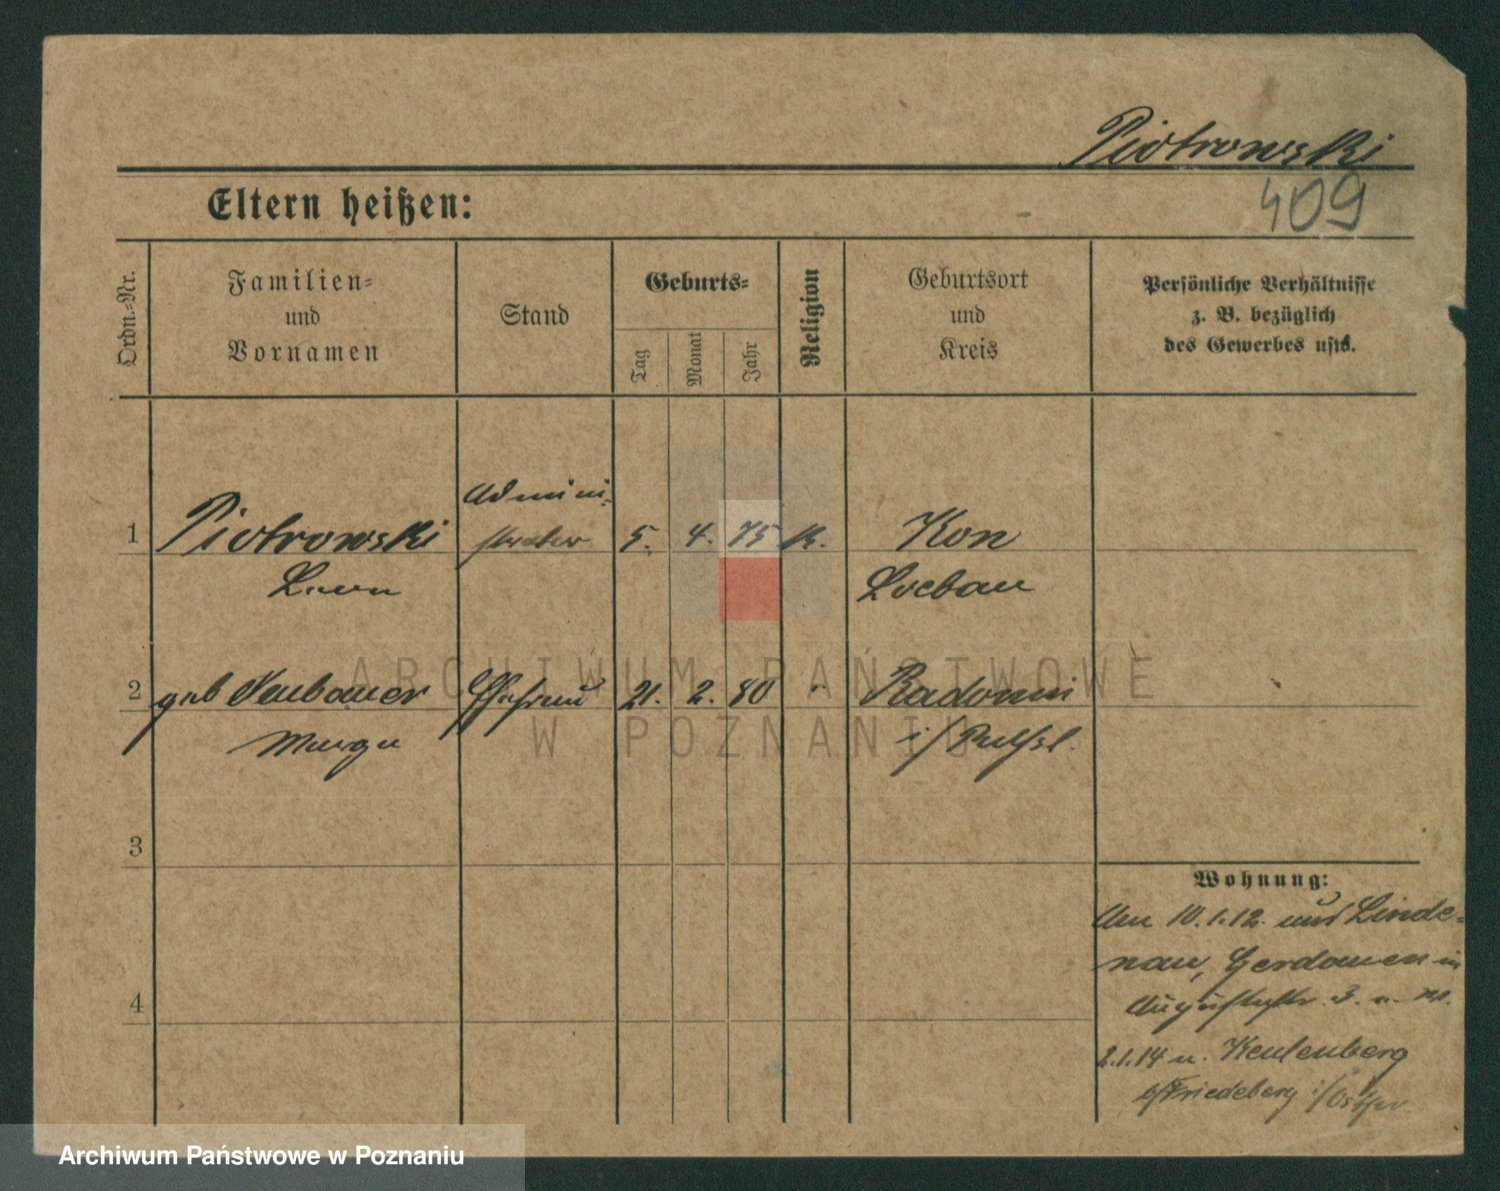 Piotrowski
409
Eltern heißen:
Ordn.-Nr.
Familien-
und
Vornamen
Stand
Geburts-
Tag
Monat
Jahr
Religion
Geburtsort
und
Kreis
Persönliche Verhältnisse
z. B. bezüglich
des Gewerbes usw.
Admini-
1 Piotrowski strator 5. 4. 75 K. Kon
Leon Loebau
ARCHIWUM PAŃSTWOWE
2 geb Neubauer Ehefrau 21. 2. 80 " Radomin
W POZNANIU
i/
3
Wohnung:
Am 10.1.12. und Linde-
nau, Gerdauen in
Auguststr. 3. n. 
4
2.1.14 n. Keulenberg
b/Friedeberg i/Ostpr
Archiwum Państwowe w Poznaniu